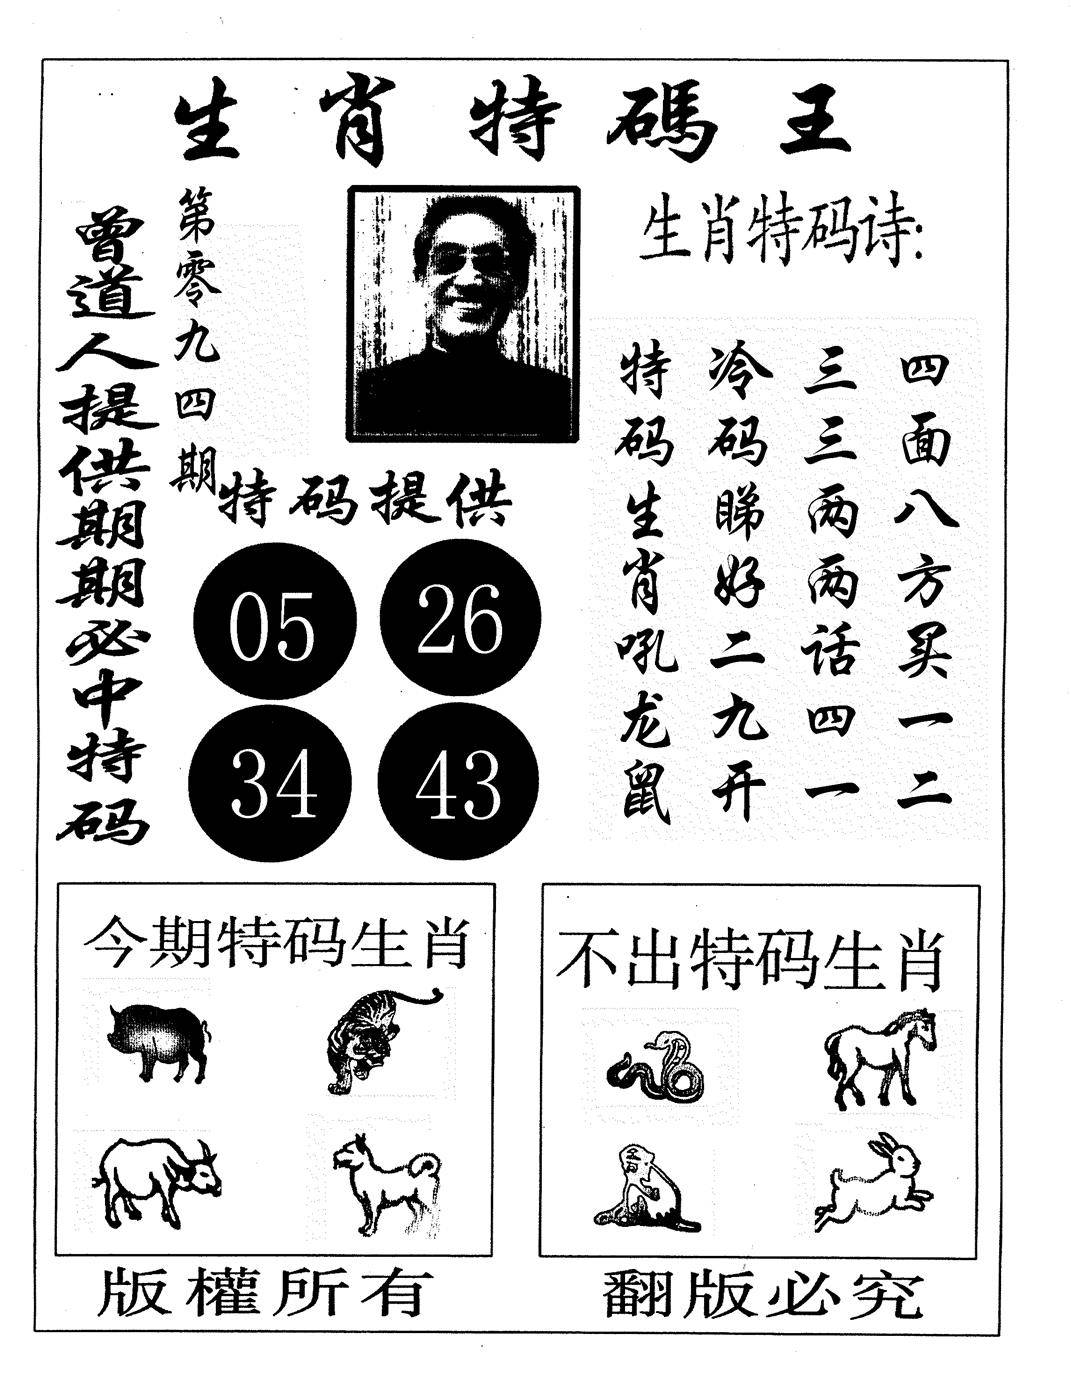 生肖特碼王
曾道人提供期期必中特码
第零九四期
生肖特码诗:
四面八方买一二
三三两两话四一
冷码睇好二九开
特码生肖吼龙鼠
特码提供
05 26
34 43
今期特码生肖
不出特码生肖
版權所有
翻版必究